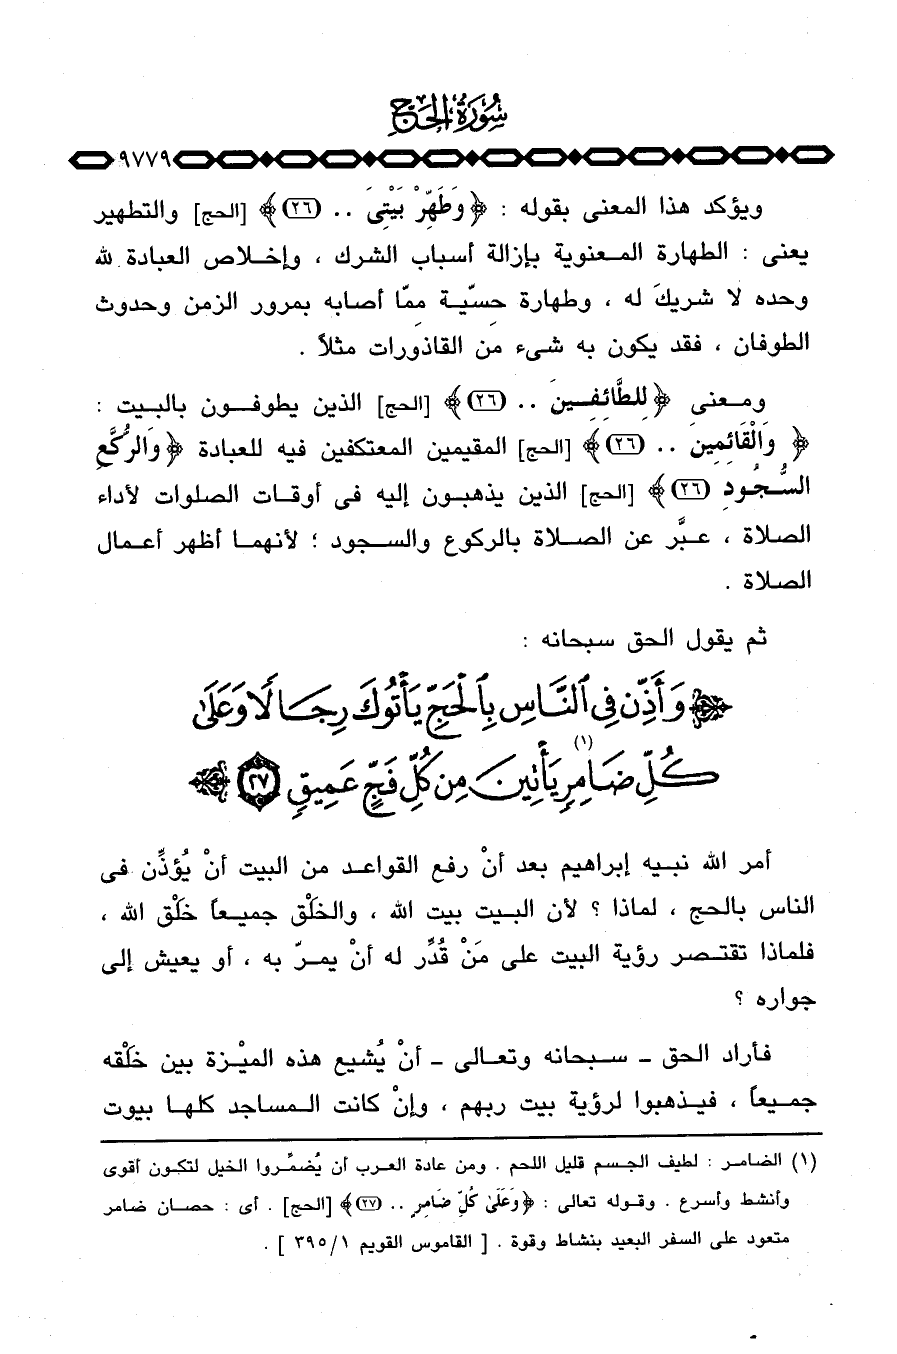 سُورَةُ الحَجّ
٩٧٧٩
ويؤكد هذا المعنى بقوله : ﴿ وَطَهِّرْ بَيْتِيَ .. (٢٦) ﴾ [الحج] والتطهير
يعنى : الطهارة المعنوية بإزالة أسباب الشرك ، وإخلاص العبادة لله
وحده لا شريكَ له ، وطهارة حسّية ممّا أصابه بمرور الزمن وحدوث
الطوفان ، فقد يكون به شىء من القاذورات مثلاً .
ومعنى ﴿ لِلطَّائِفِينَ .. (٢٦) ﴾ [الحج] الذين يطوفون بالبيت :
﴿ وَالْقَائِمِينَ .. (٢٦) ﴾ [الحج] المقيمين المعتكفين فيه للعبادة ﴿ وَالرُّكَّعِ
السُّجُودِ (٢٦) ﴾ [الحج] الذين يذهبون إليه فى أوقات الصلوات لأداء
الصلاة ، عبَّر عن الصلاة بالركوع والسجود ؛ لأنهما أظهر أعمال
الصلاة .
ثم يقول الحق سبحانه :
﴿ وَأَذِّن فِى ٱلنَّاسِ بِٱلْحَجِّ يَأْتُوكَ رِجَالًا وَعَلَىٰ
كُلِّ ضَامِرٍ (١) يَأْتِينَ مِن كُلِّ فَجٍّ عَمِيقٍ (٢٧) ﴾
أمر الله نبيه إبراهيم بعد أنْ رفع القواعد من البيت أنْ يُؤذِّن فى
الناس بالحج ، لماذا ؟ لأن البيت بيت الله ، والخلْق جميعاً خلْق الله ،
فلماذا تقتصر رؤية البيت على مَنْ قُدِّر له أنْ يمرّ به ، أو يعيش إلى
جواره ؟
فأراد الحق - سبحانه وتعالى - أنْ يُشيع هذه الميْزة بين خَلْقه
جميعاً ، فيذهبوا لرؤية بيت ربهم ، وإنْ كانت المساجد كلها بيوت
(١) الضامر : لطيف الجسم قليل اللحم . ومن عادة العرب أن يُضمِّروا الخيل لتكون أقوى
وأنشط وأسرع . وقوله تعالى : ﴿ وَعَلَىٰ كُلِّ ضَامِرٍ .. (٢٧) ﴾ [الحج] . أى : حصان ضامر
متعود على السفر البعيد بنشاط وقوة . [ القاموس القويم ٣٩٥/١ ] .